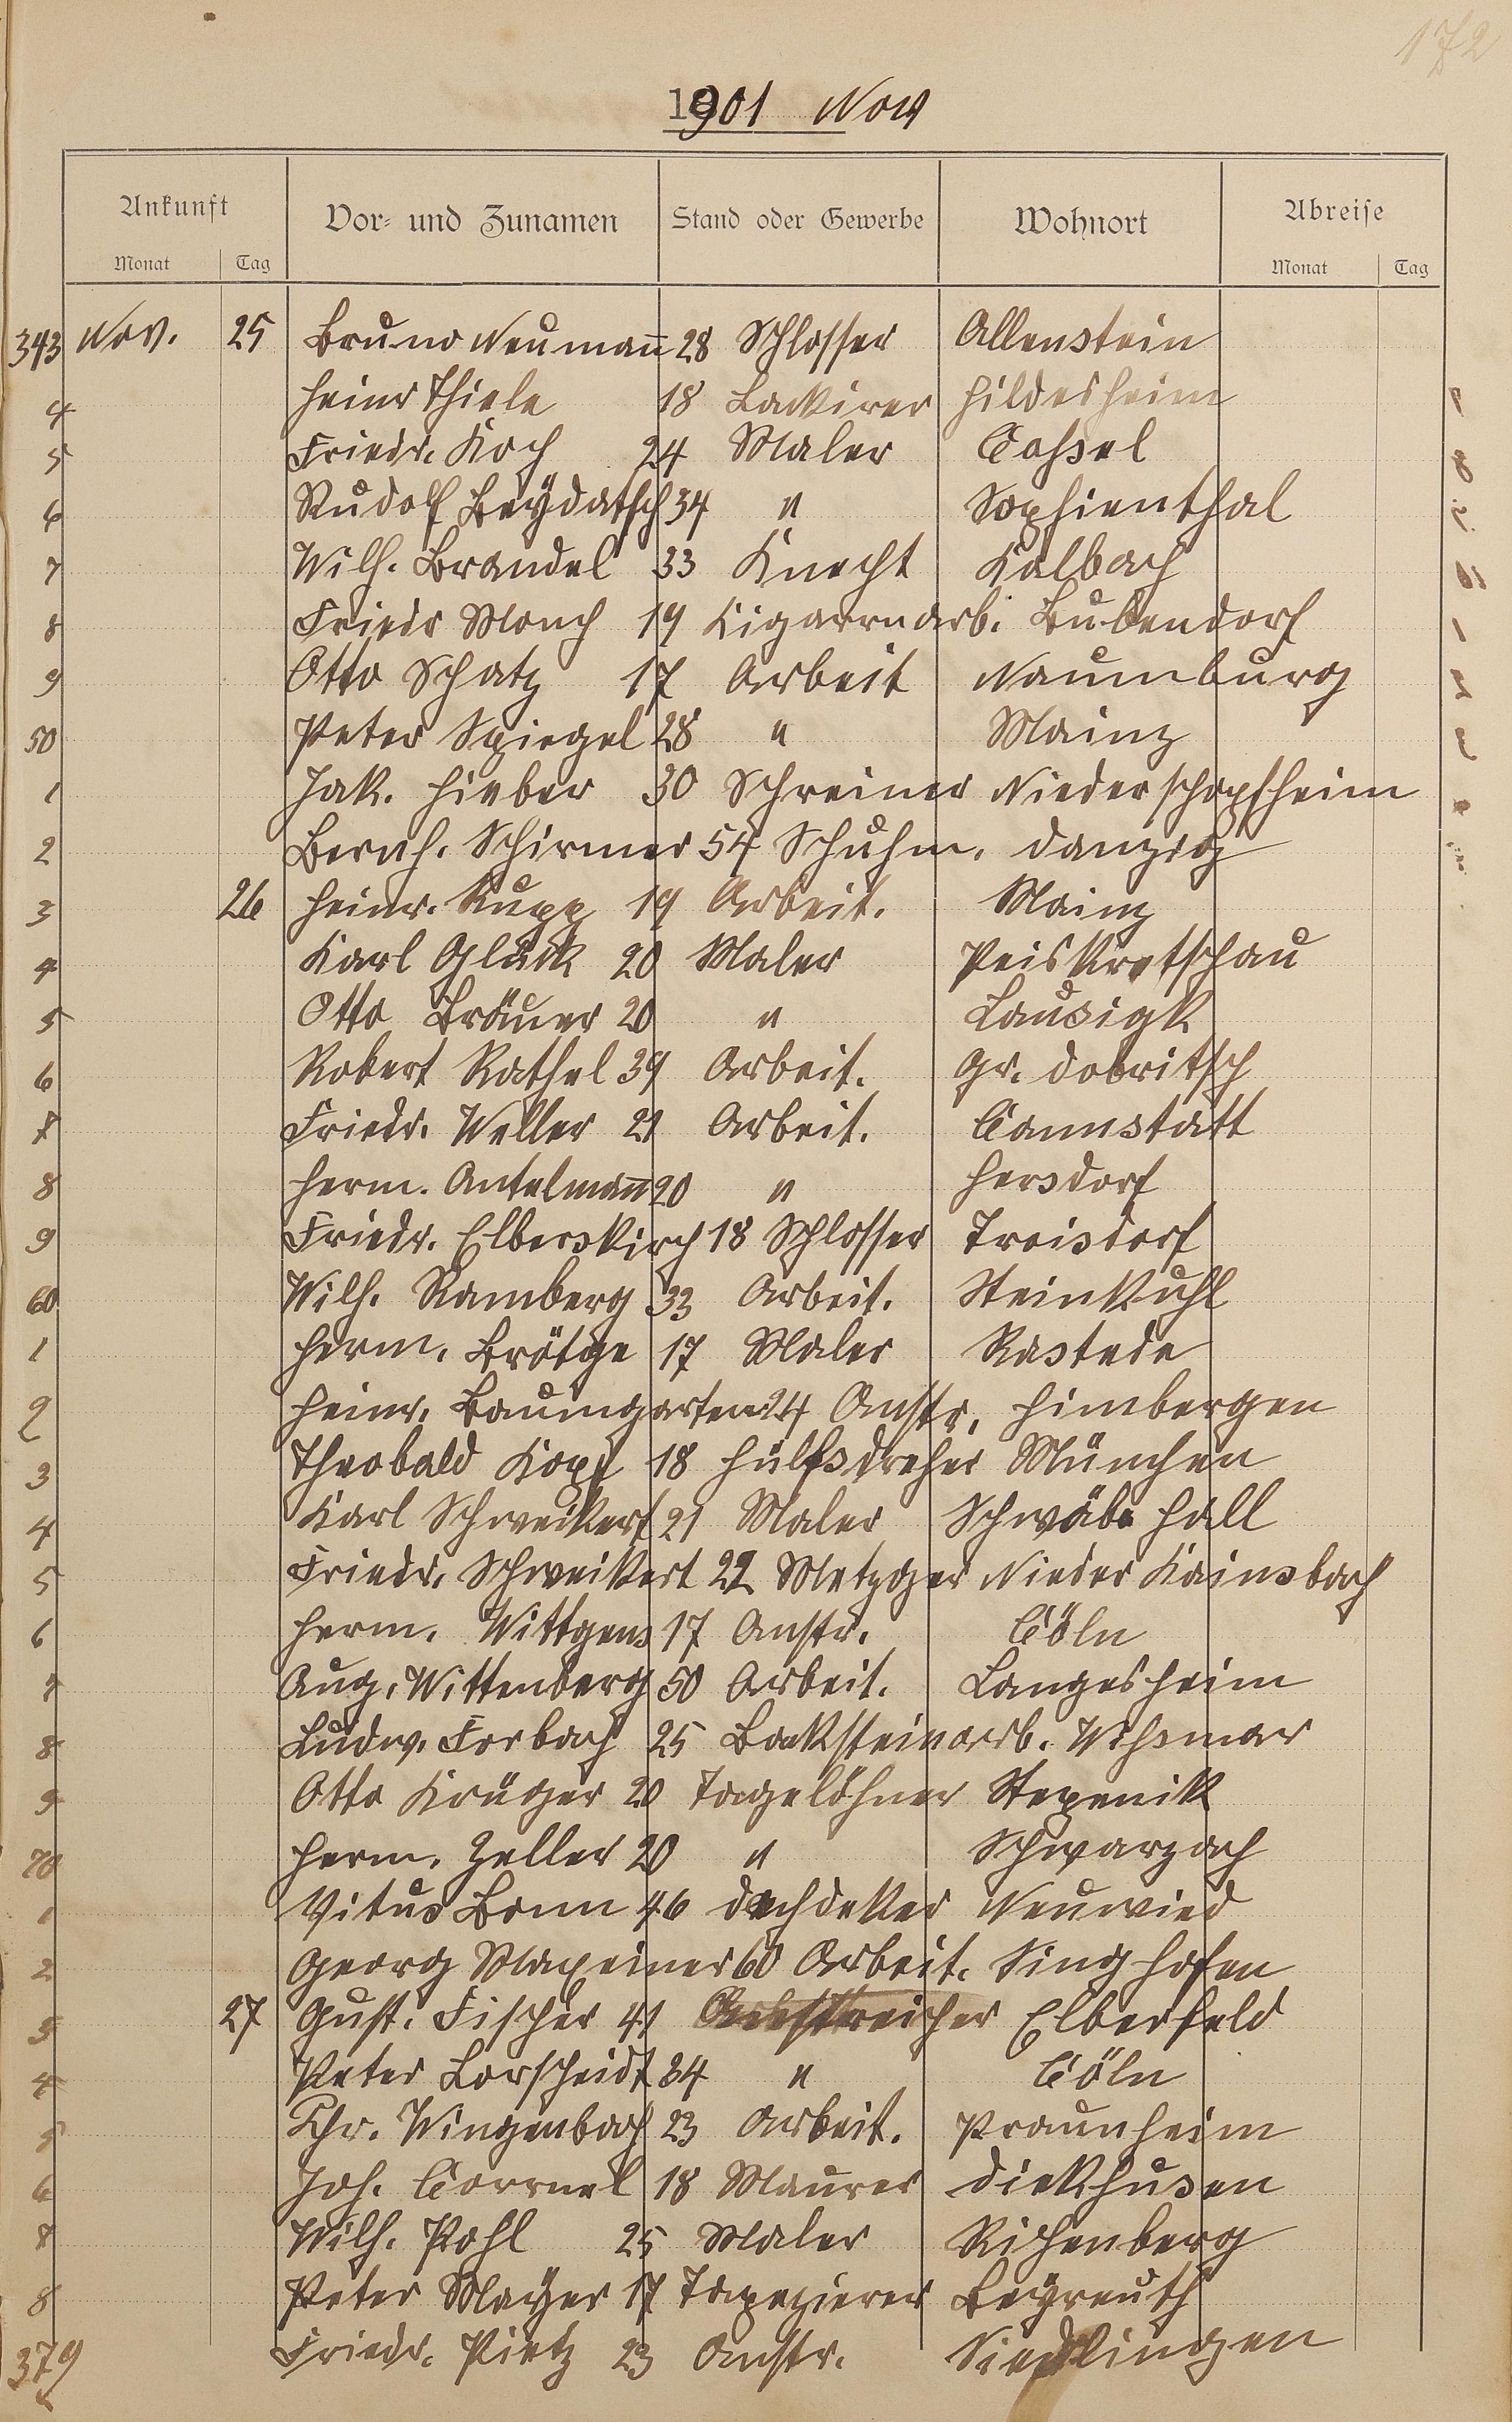 172
1901 Nov
Ankunft Vor- und Zunamen Stand oder Gewerbe Wohnort Abreise
Monat Tag Monat Tag
343 Nov. 25 Bruno Neumann 28 Schlosser Allenstein
4 Heinr Thiele 18 Lackirer Hildesheim
5 Friedr. Koch 24 Maler Cassel
6 Rudolf Beydatsch 34 " Sophienthal
7 Wilh. Brandel 33 Knecht Kalbach
8 Friedr Monch 19 Cigarrnarb. Bubendorf
9 Otto Schatz 17 Arbeit Naumburg
50 Peter Spiegel 28 " Mainz
1 Jak. Hieber 30 Schreiner Niederschopfheim
2 Bernh. Schirmer 54 Schuhm. Danzig
3 26 Heinr. Rupp 19 Arbeit. Mainz
4 Karl Gluck 20 Maler Peiskretschau
5 Otto Bräuer 20 " Lausigk
6 Robert Rathel 39 Arbeit. Gr. Dobritsch
7 Friedr. Weller 21 Arbeit. Cannstatt
8 Herm. Antelmann 20 " Hersdorf
9 Friedr. Elberskirch 18 Schlosser Troisdorf
60 Wilh. Ramberg 33 Arbeit. Steinkuhl
1 Herm. Brötge 17 Maler Rastede
2 Heinr. Baumgarten 24 Anstr. Himbergen
3 Theobald Kopf 18 Hülfsdreher München
4 Karl Schweikert 21 Maler Schwäb Hall
5 Friedr. Schweikert 22 Metzger Nieder Kainsbach
6 Herm. Wittgens 17 Anstr. Cöln
7 Aug. Wittenberg 50 Arbeit. Langesheim
8 Ludw. Forbach 25 Backsteinarb. Wissmar
9 Otto Krüger 20 Tagelöhner Stepenik
70 Herm. Zeller 20 " Schwarzach
1 Vitus Bonn 46 Dachdeker Neuwied
2 Georg Maxeiner 60 Arbeit. Singhofen
3 27 Gust. Fischer 41 Anstreicher Elberfeld
4 Peter Lorscheidt 34 " Cöln
5 Chr. Wingenbach 23 Arbeit. Praunheim
6 Joh. Cornel 18 Maurer Diekhusen
7 Wilh. Pohl 25 Maler Richenberg
8 Peter Mayer 17 Tapezierer Beyreuth
379 Friedr. Pietz 23 Anstr.